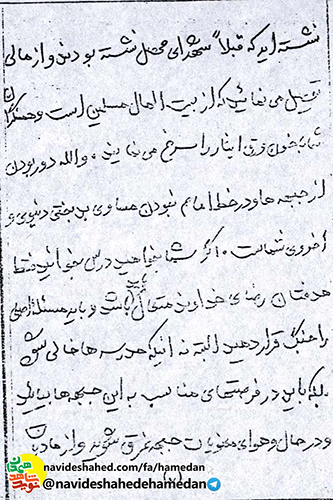 نشسته اید که قبلاً شهدای محصل نشسته بودند و از مالی
تحصیل می نمائید که از بیت المال مسلمین است و همسنگران
شما بخون خود ورق ایثار را سرخ می نمایند. والله دور بودن
از جبهه ها و در خط امام نبودن مساوی بدبختی دنیوی و
اخروی شماست. اگر شما بخواهید درس بخوانید فقط
هدفتان رضای خداوند متعال باید باشد و باید مسئله اصلی
را جنگ قرار دهید البته نه اینکه مدرسه ها خالی شود
بلکه باید در فرصتهای مناسب به این جبهه ها بیائید
و در حال و هوای معنویات جبهه غرق شوید و از مادیات
navideshahed.com/fa/hamedan
@navideshahedehamedan